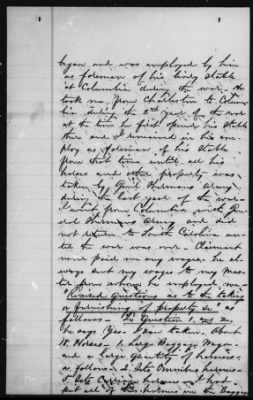 began and was employed by him
as foreman of his livery Stable
at Columbia during the war. He
took me from Charleston to Colum-
bia during the 2nd year of the war
at the time he first opened his Stable
there and I remained in his em-
ploy as foreman of his Stable
from that time until all his
horses and other property was
taken by Genl Shermans Army
during the last year of the war-
I went from Columbia with Gen-
eral Shermans Army and did
not return to South Carolina un-
til the war was over. Claimant
never paid me any wages. he al-
ways sent my wages to my Mas-
ter from whom he employed me.
Revised Questions as to the taking
or furnishing of property &c as
follows - To Question 1. and 2
he says Yes. I saw taken. About
18. Horses - 1. Large Baggage Wagon-
and a Large Quantity of harness-
as follows- 2. Sets Omnibus harness-
Sets Carriage harness - I had
put all of the harness in the Baggage